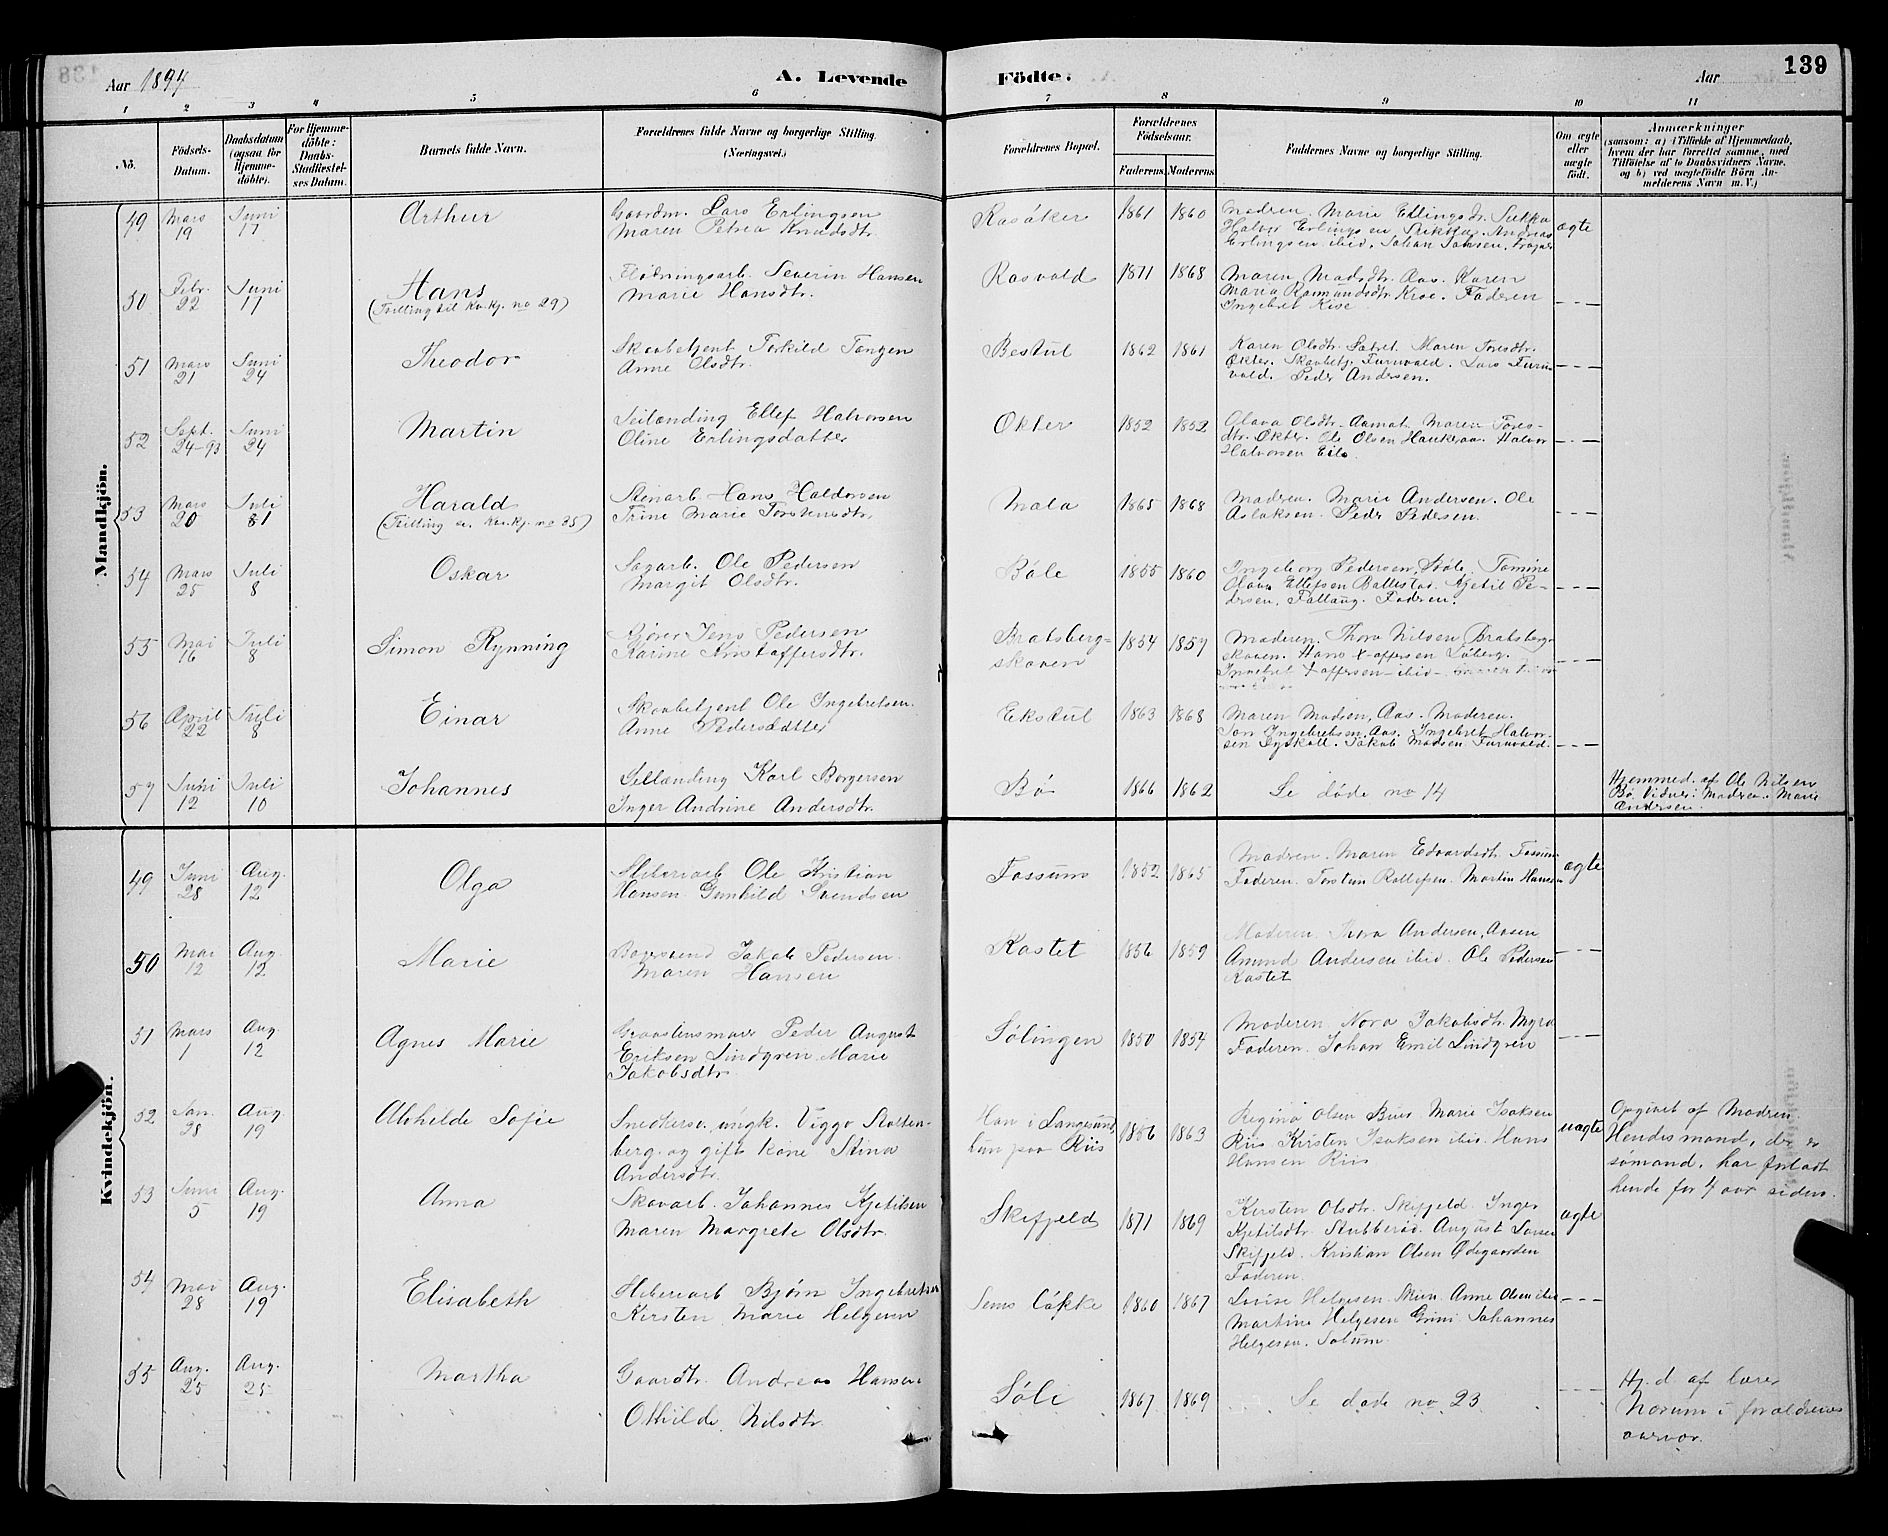 Aar 1894
A. Levende
Födte.
Aar
139
1 2 3 4 5 6 7 8 9 10 11
No.
Födsels-Datum.
Daabsdatum (ogsaa for Hjemme-döbte).
For Hjemme-döbte: Daabs-Stadfæstel-ses Datum.
Barnets fulde Navn.
Forældrenes fulde Navne og borgerlige Stilling. (Næringsvei.)
Forældrenes Bopæl.
Forældrenes Födselsaar.
Faderens Moderens
Faddernes Navne og borgerlige Stilling.
Om ægte eller uægte födt.
Anmærkninger
(saasom: a) i Tilfælde af Hjemmedaab,
hvem der har forrettet samme, med
Tilföielse af to Daabsvidners Navne,
og b) ved uægtefödte Börn An-
melderens Navn m. V.)
Mandkjön.
49 Mars 19 Juni 17 Arthur
Gaardm. Lars Erlingsen
Maren Petrea Knudsdtr.
Rasåker 1861 1860
Madren. Marie Ellingsdr.
Halvor Erlingsen Andreas
Erlingsen ibid. Johan Jansen,
ægte
50 Febr. 22 Juni 17 Hans
(Tvilling til Kv.kj. no 29)
Flødningsarb. Severin Hansen
Marie Hansdtr.
Rasvald 1871 1868
Maren Madsdtr. Aas. Karen
Maria Kroe. Faderen
Ingebret
51 Mars 21 Juni 24 Theodor
Skovbetjent Torkild Tangen
Anne Olsdtr.
Bestul 1862 1861
Karen Olsdtr. Maren Toresdtr.
Økter. Skovbetj. Furuvald. Lars Furu-
vald. Peder Andersen.
52 Sept. 24-93 Juni 24 Martin
Leilænding Ellef Halvorsen
Oline Erlingsdatter
Økter 1852 1852
Olava Olsdtr. Aamot. Maren Tores-
dtr. Økter. Ole Olsen Haukeraa. Halvor
Halvorsen
53 Mars 20 Juli 81 Harald
(Tvilling Kv.kj. no 35)
Stenarb. Hans Haldorsen
Trine Marie Torstensdtr.
Mala 1865 1868
Madren. Marie Andersen. Ole
Aslaksen. Peder Pedersen.
54 Mars 25 Juli 8 Oskar
Sagarb. Ole Pedersen
Margit Olsdtr.
Bøle 1855 1860
Ingeborg Pedersen, Bøle. Tomine
Olava Ellefsen Ballestad. Kjetil Pe-
dersen, Fallaug. Fadren.
55 Mai 16 Juli 8 Simon Rynning
Kjører Jens Pedersen
Karine Kristoffersdtr.
Bratsberg-
skoven 1854 1857
Moderen. Thora Nilsen Bratsberg-
skoven. Hans X-offersen
Ingebret X-offersen ibid
56 April 22 Juli 8 Einar
Skovbetjent Ole Ingebretsen.
Anne Pedersdatter
Ekstul 1863 1868
Maren Madsen, Aas. Moderen.
Ingebretsen Aas. Ingebret Halvor-
sen Jakob Madsen Furuvald.
57 Juni 12 Juli 10 Johannes
Leilænding Karl Borgersen
Inger Andrine Andersdtr.
Bø 1866 1862
Se døde no 14
Hjemmed. af Ole Nilsen
Bø. Vidner: Madren. Marie
Andersen.
Kvindekjön.
49 Juni 28 Aug. 12 Olga
Ole Kristian
Hansen. Gunhild Svendsen
Fossum 1852 1865
Madren. Maren Edvardsdtr. Fossum
Faderen. Torsten Rollefsen. Martin Hansen
ægte
50 Mai 12 Aug. 12 Marie
Jakob Pedersen.
Maren Hansen
Kastet 1856 1859
Moderen. Thora Andersen, Aasen
Amund Andersen ibid. Ole Pedersen
Kastet
51 Mars 1 Aug. 12 Agnes Marie
Peder August
Eriksen Lindgren Marie
Jakobsdtr.
Sølingen 1850 1854
Moderen. Nora Jakobsdtr. Myra
Faderen. Johan Emil Lindgren
52 Jan. 28 Aug 19 Alvhilde Sofie
Snedkersv. ungk. Viggo Stolten-
berg og gift kone Stina
Andersdtr.
Han i Langesund,
hun paa Riis 1856 1863
Regina Olsen Marie Isaksen
Riis Kirsten Isaksen ibid. Hans
Hansen Riis
uægte
Opgivet af Madren
Hendes mand, der er
sømand, har forladt
hende for 4 aar siden.
53 Juni 5 Aug. 19 Anna
Skovarb. Johannes Kjetilsen
Maren Margrete Olsdtr.
Skifjeld 1871 1869
Kirsten Olsdtr. Skifjeld. Inger
Kjetilsdtr. Stubberød. August Larsen
Skifjeld. Kristian Olsen Ødegaarden
Faderen.
ægte
54 Mai 28 Aug. 19 Elisabeth
Bjørn Ingebretsen
Kirsten Marie Helgesen
Sems Løkke 1860 1867
Lovise Helgesen. Skien. Anne Olsen ibid
Martine Helgesen Grini. Johannes
Helgesen. Solum.
55 Aug. 25 Aug. 25 Martha
Gaardbr. Andreas Hansen
Othilde Nilsdtr.
Søli 1867 1869
Se døde no 23
Hj. d. af lærer
Norum i forældrenes